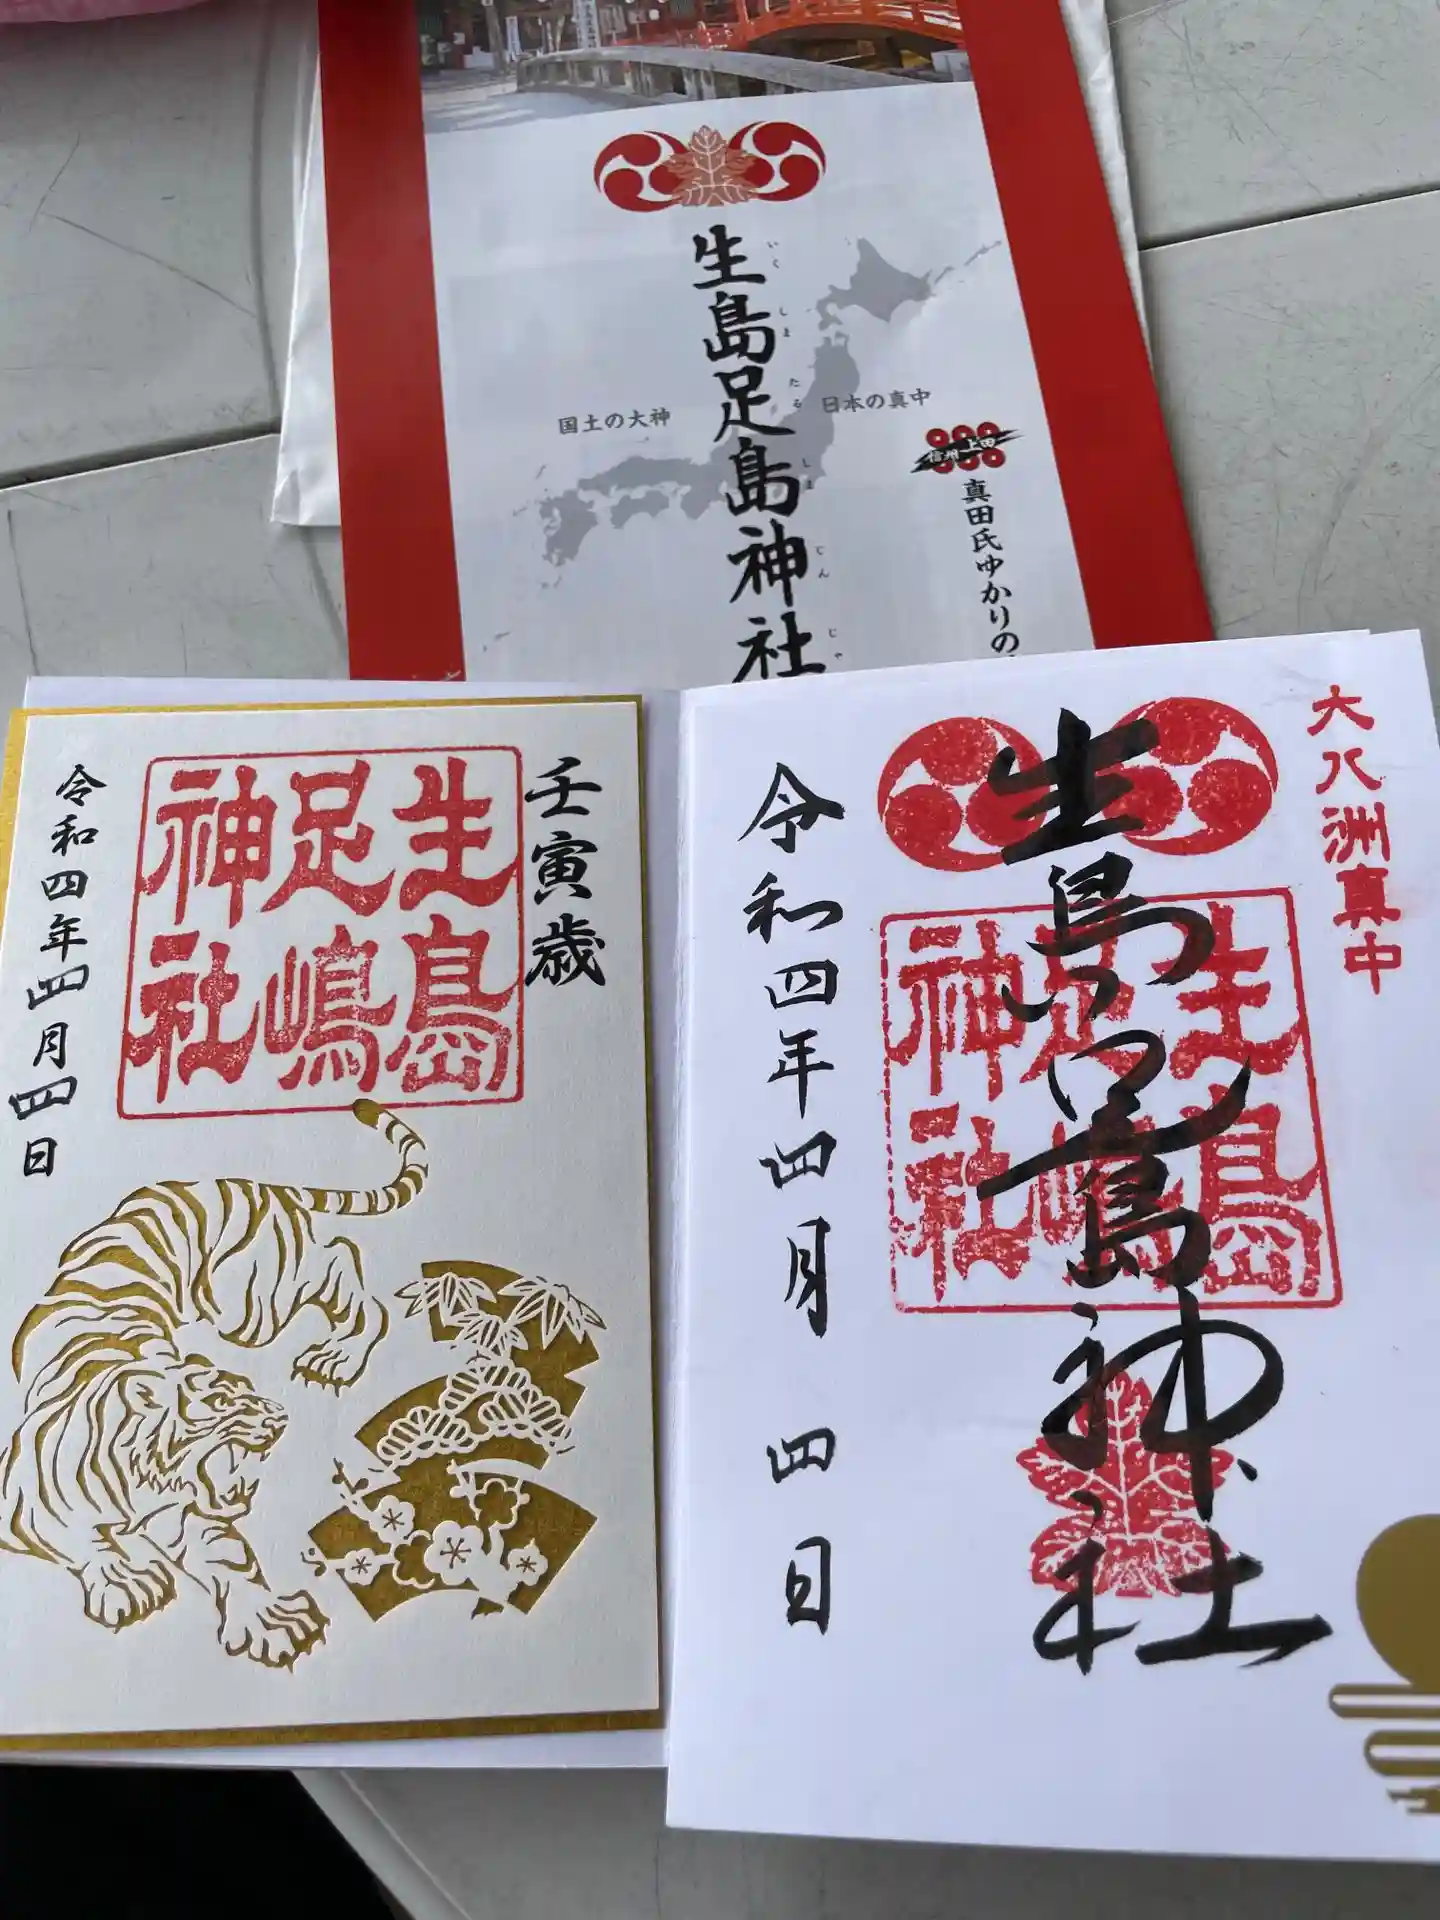 生島足島神社
いくしまたるしまじんじゃ
国土の大神
日本の真中
信州上田
真田氏ゆかりの
壬寅歳
生島足嶋神社
令和四年四月四日
大八洲真中
生島足島神社
生島足嶋神社
令和四年四月四日